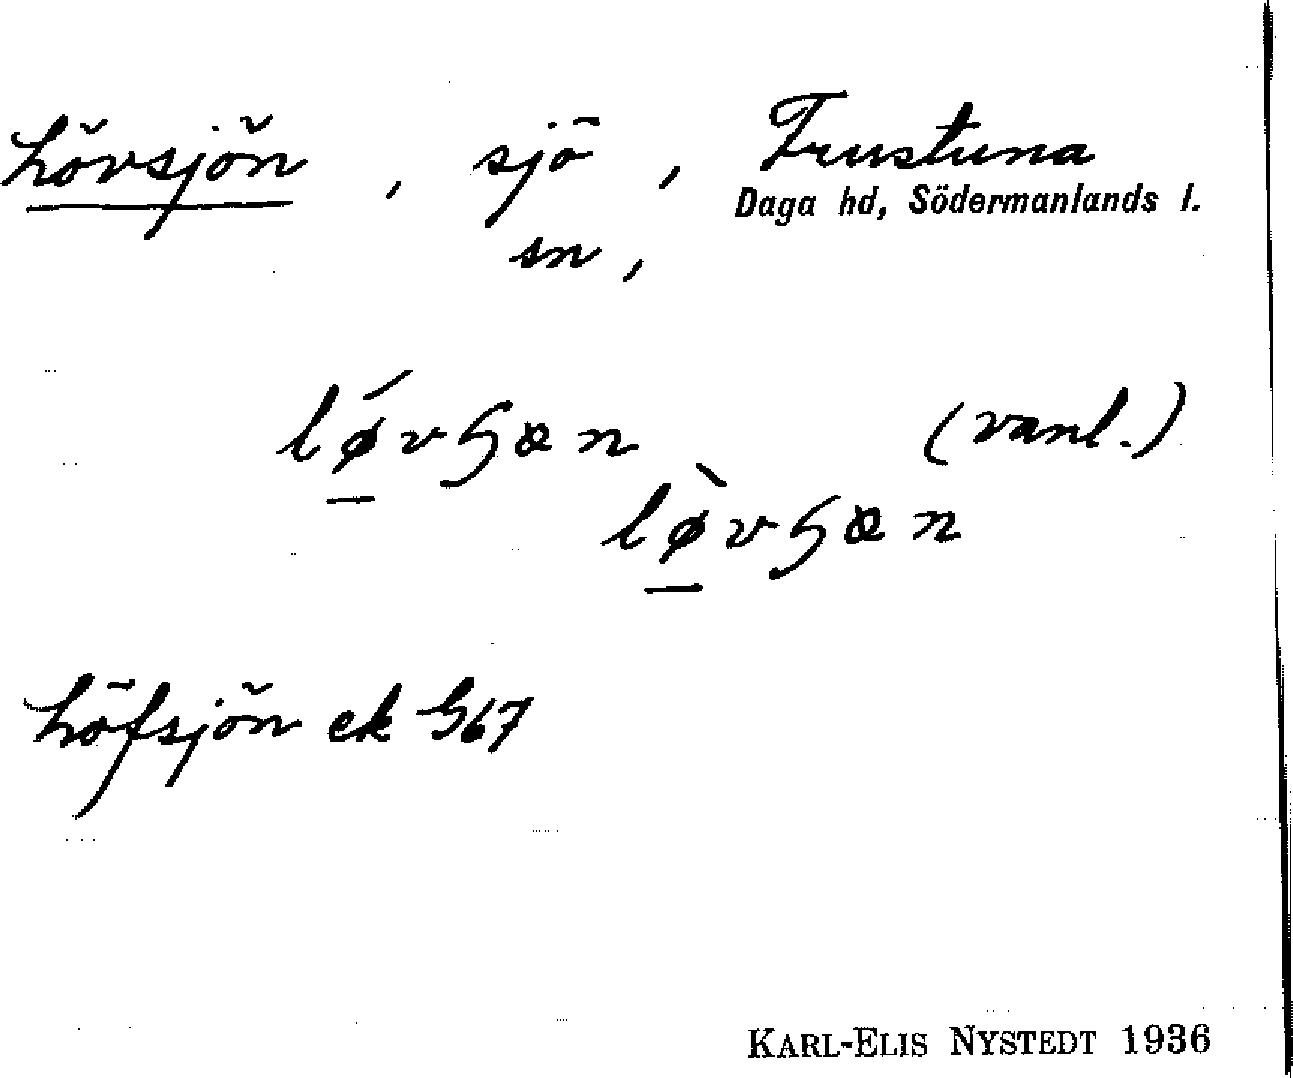 Lövsjön, sjö, Frustuna
Daga hd, Södermanlands l.
sn,
(vanl.)
Löfsjön ek G67
KARL-ELIS NYSTEDT 1936